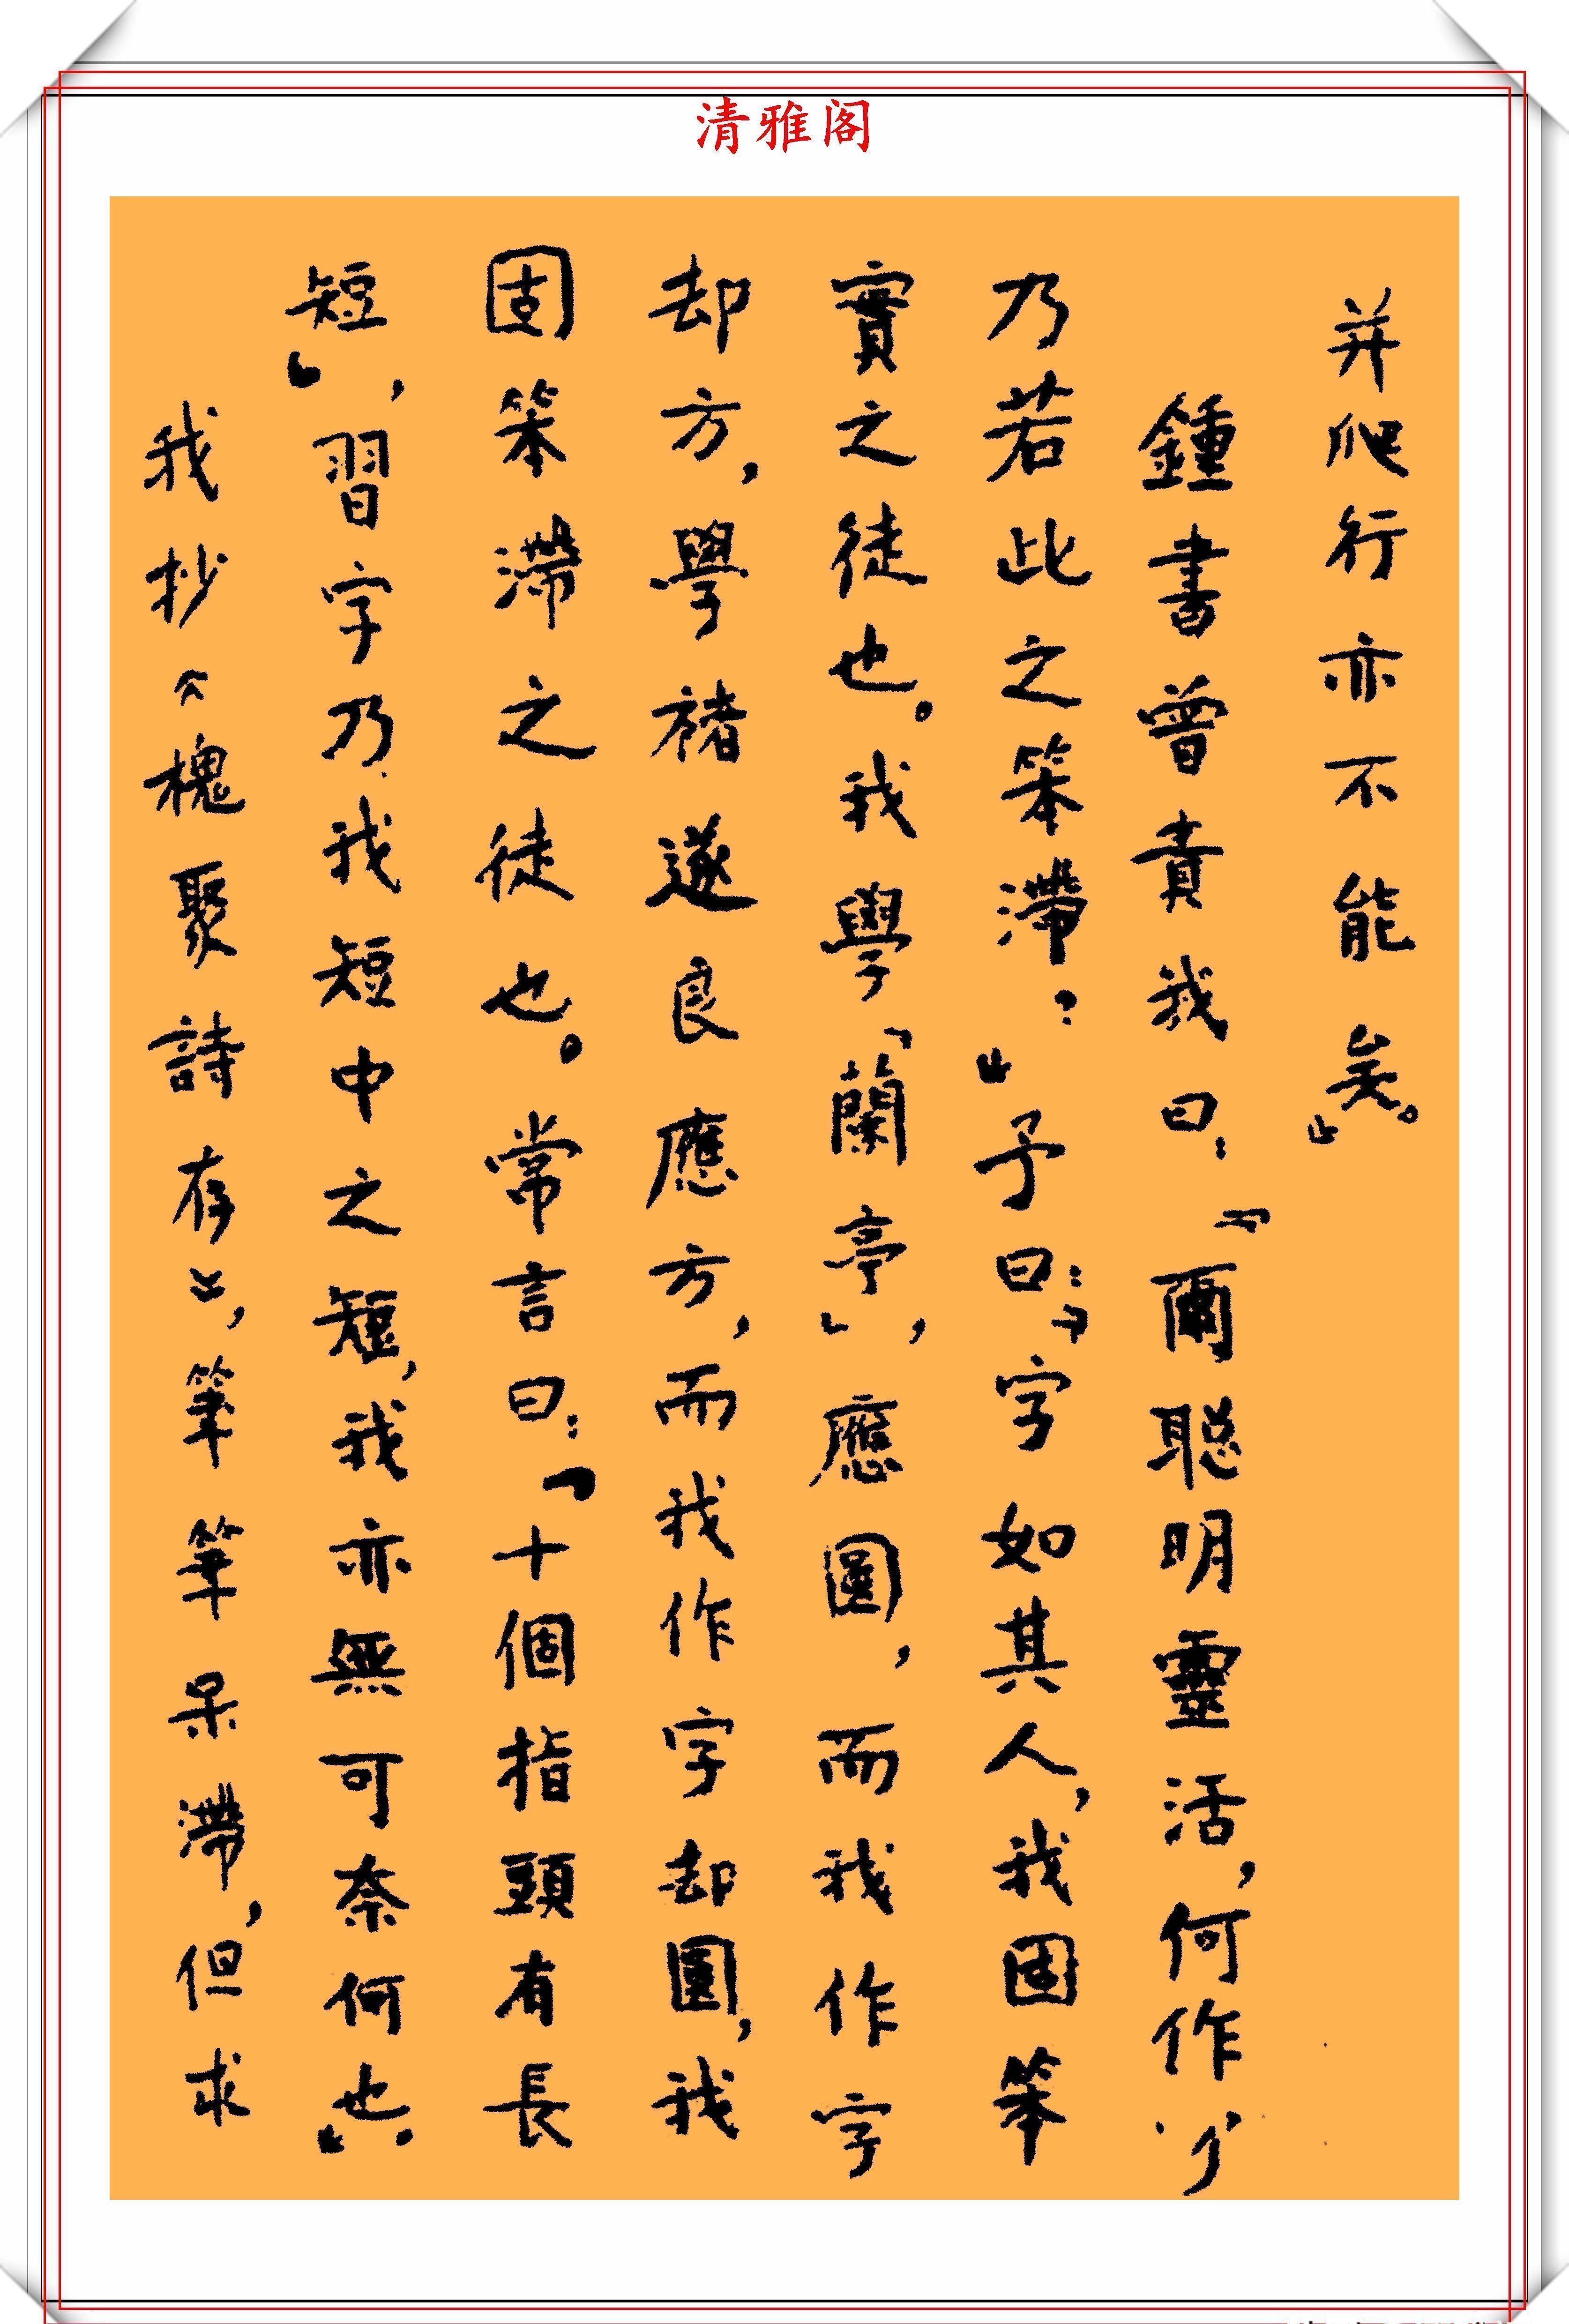 清雅阁
并爬行亦不能矣。』
鍾書曾責我曰:『爾聪明靈活,何作字
乃若此之笨滯?』予曰:『字如其人,我固笨
實之徒也。我學「蘭亭」,應圓,而我作字
却方,學褚遂良應方,而我作字却圓,我
固笨滯之徒也。常言曰:「十個指頭有長
短」,習字乃我短中之短,我亦無可奈何也。』
我抄《槐聚詩存》,筆筆呆滯,但求